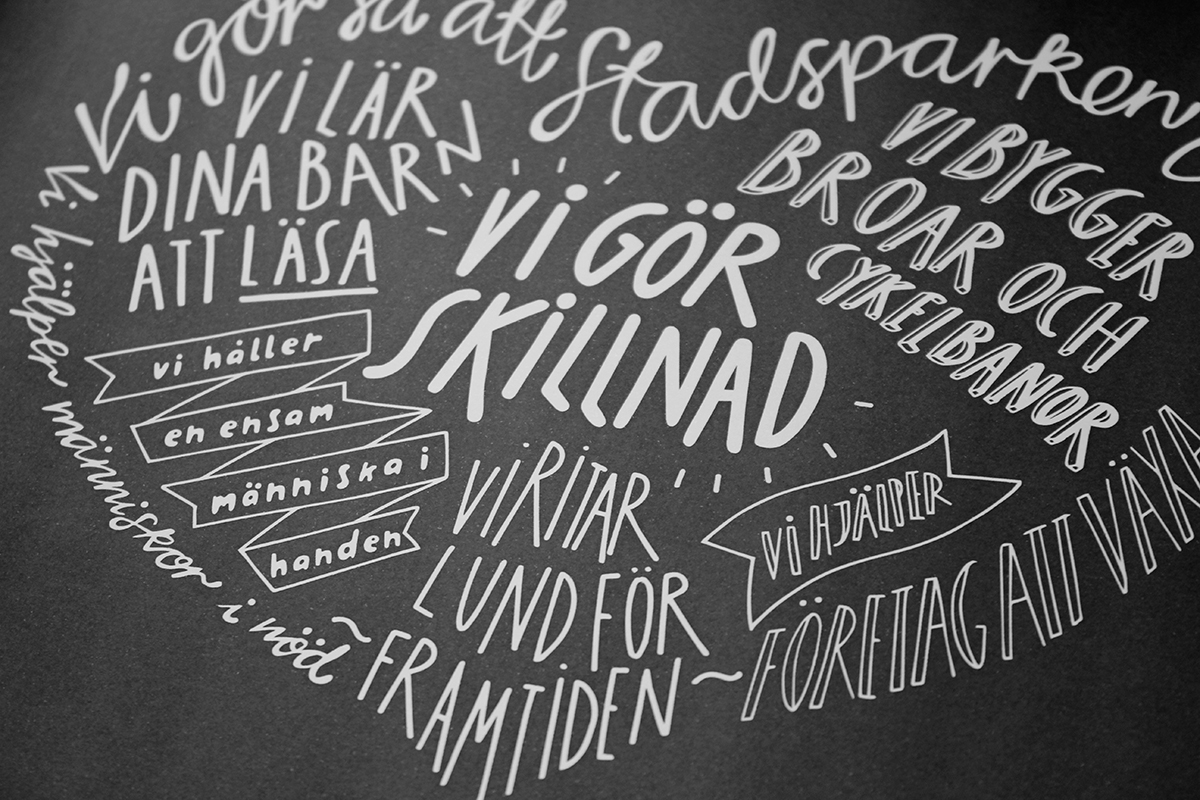 Vi gör så att Stadsparken
VI LÄR
DINA BARN
ATT LÄSA
VI GÖR
SKILLNAD
VI BYGGER
BROAR OCH
CYKELBANOR
vi håller
en ensam
människa i
handen
Vi hjälper människor i nöd
VI RITAR
LUND FÖR
FRAMTIDEN
VI HJÄLPER
FÖRETAG ATT VÄXA